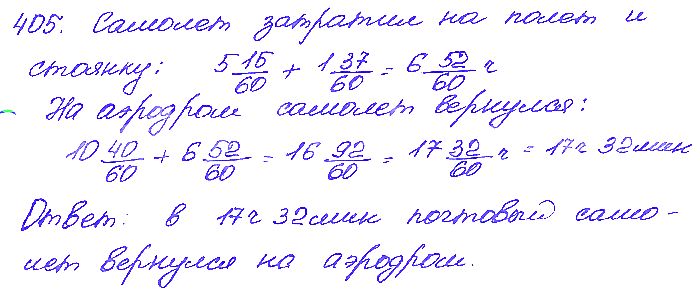 405. Самолет затратил на полет и
стоянку: 5 15/60 + 1 37/60 = 6 52/60 ч
На аэродром самолет вернулся:
10 40/60 + 6 52/60 = 16 92/60 = 17 32/60 ч = 17ч 32мин
Ответ: в 17ч 32мин почтовый само-
лет вернулся на аэродром.